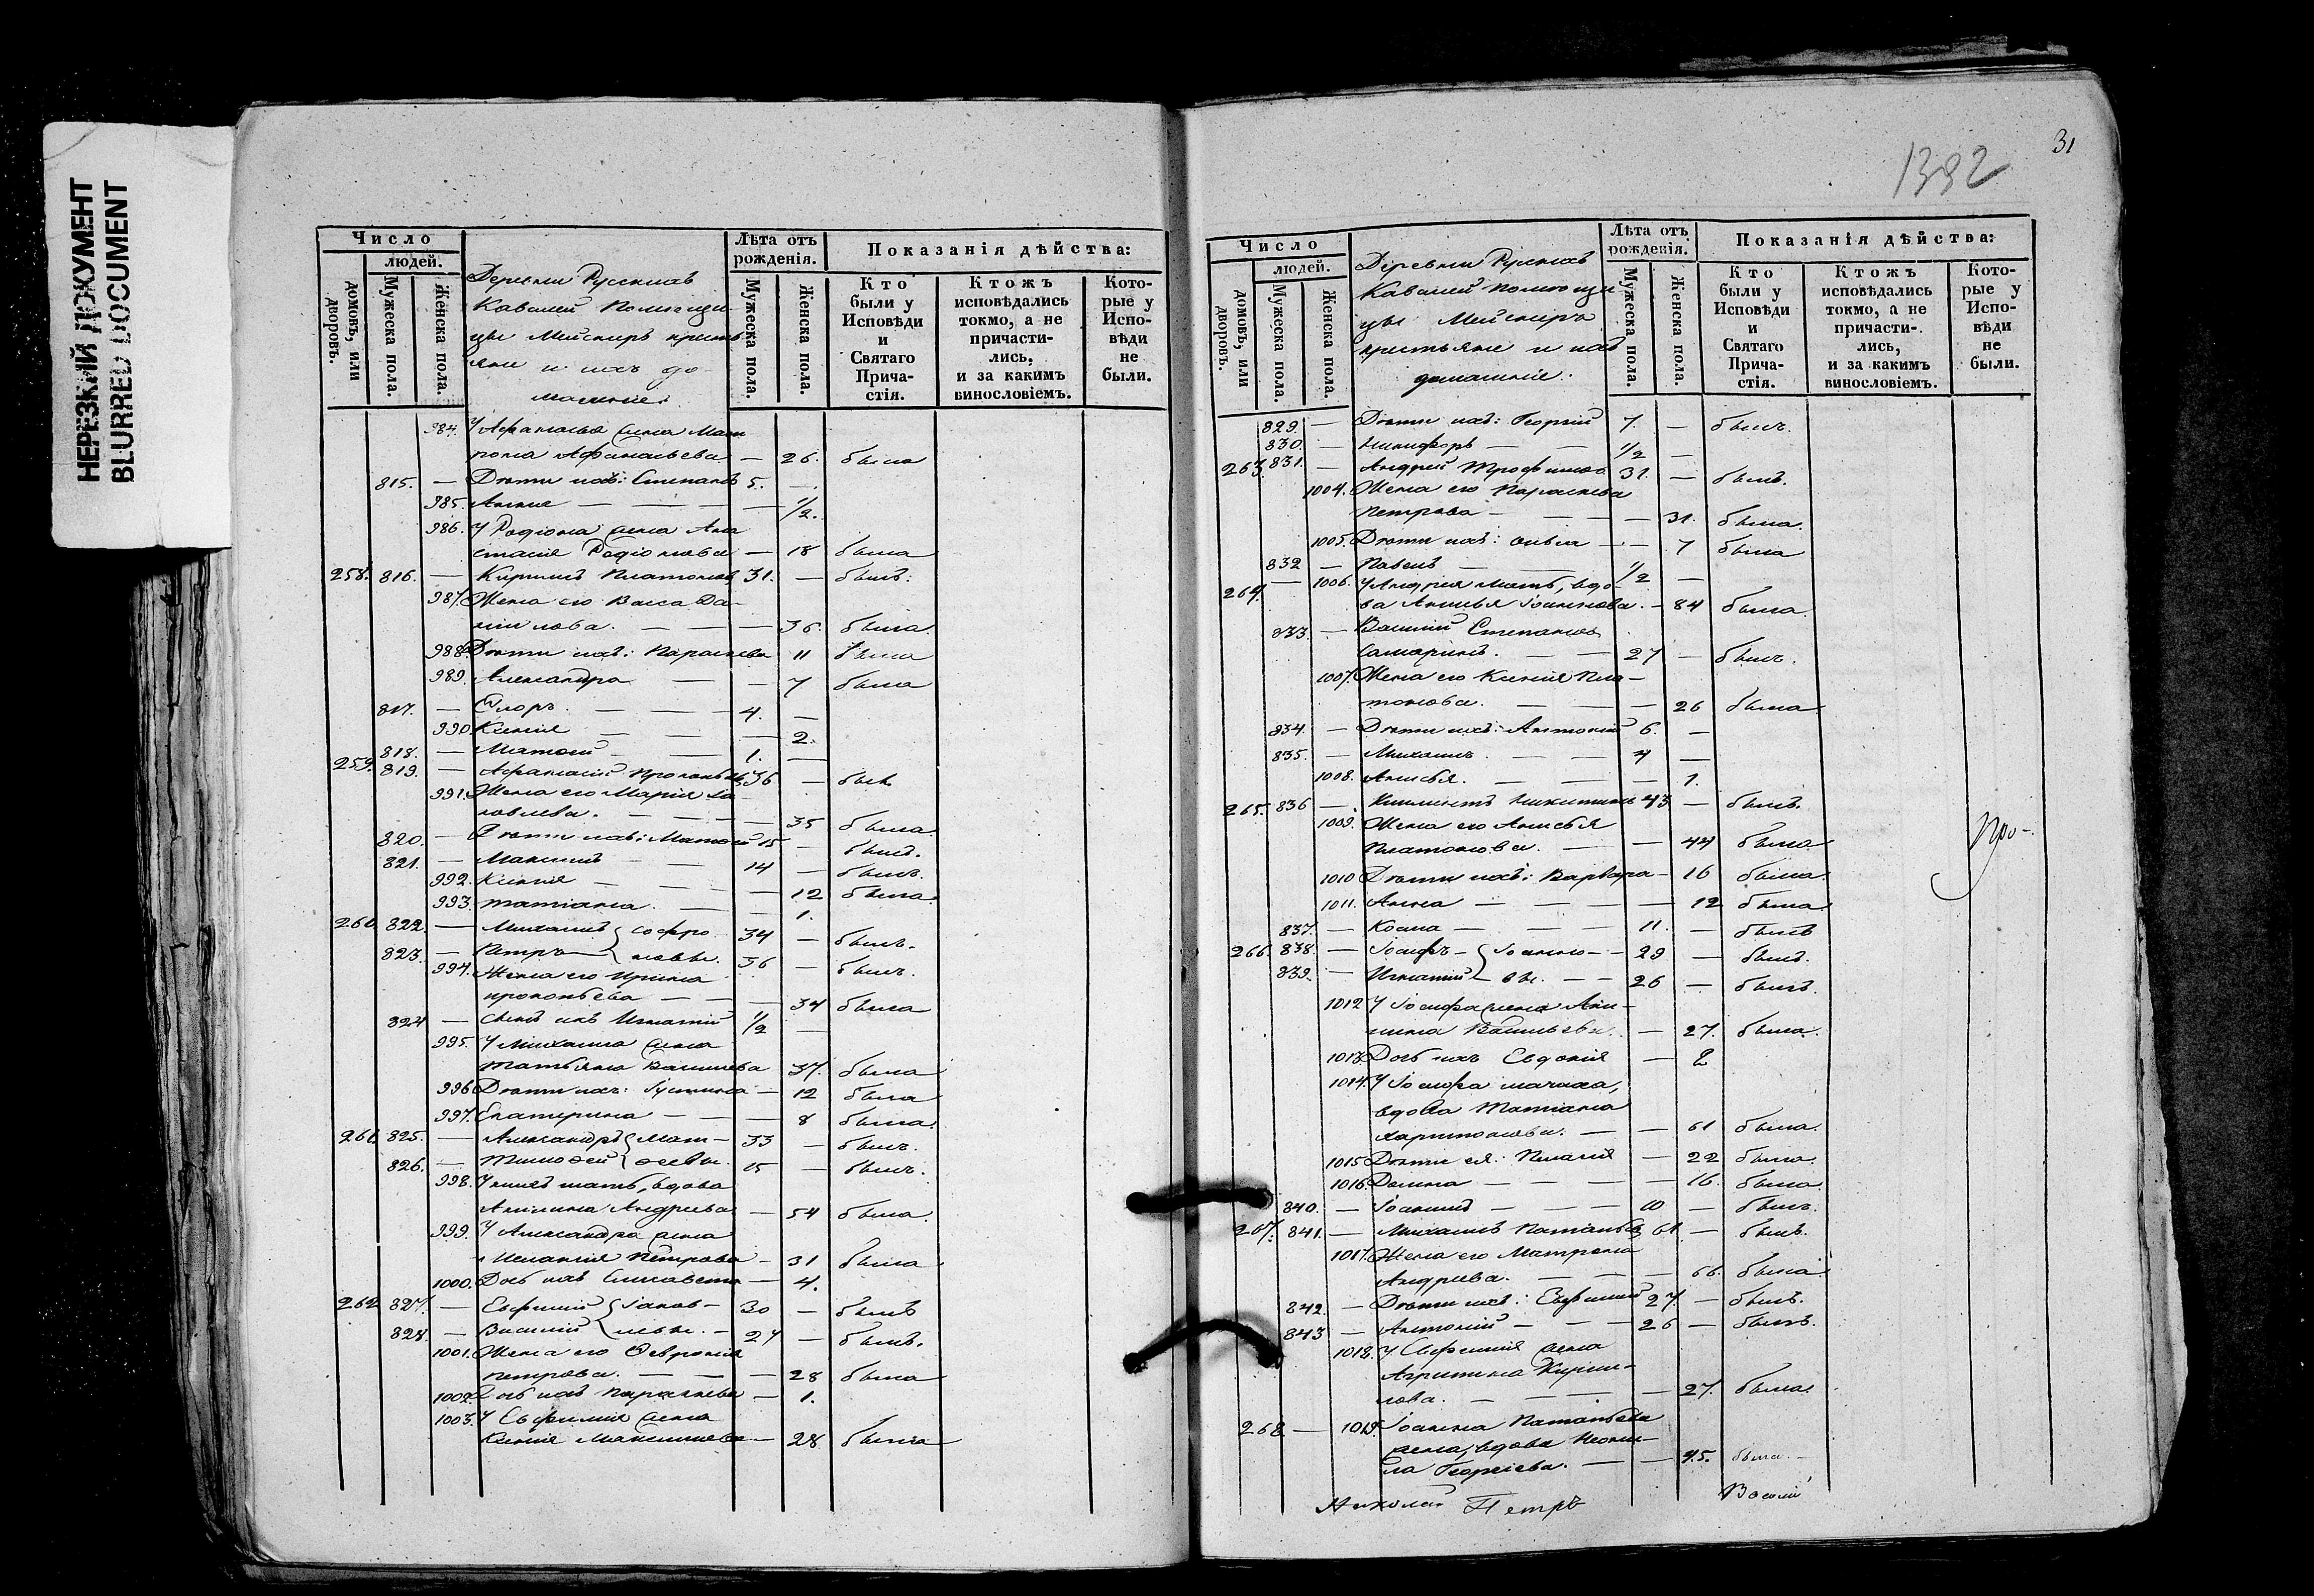 НЕРЕЗКИЙ ДОКУМЕНТ
BLURRED DOCUMENT
Число
людей.
домовъ, или дворовъ.
Мужеска пола.
Женска пола.
Деревни Русскихъ
Кавалей Помѣщи-
цы Мейснеръ крестья
яне и ихъ до-
машніе:
Лѣта отъ рожденія.
Мужеска пола.
Женска пола.
Показанія дѣйства:
Кто были у Исповѣди и Святаго Прича-стія.
Ктожъ исповѣдались токмо, а не причасти-лись, и за какимъ винословіемъ.
Кото-рые у Испо-вѣди не были.
984. У Афанасья жена Мат
рона Афанасьева — 26. была
815. — Дѣти ихъ: Степанъ 5. —
985. Анна — — — 1/2.
986. У Родіона жена Ана
стасія Родіонова — 18 была
258. 816. — Кириллъ Платоновъ 31. — былъ.
987. Жена его Васса Да-
нилова. — — — 36. была.
988. Дѣти ихъ: Параскева 11 была
989. Александра — — 7 была
817. — Егоръ. — — 4. —
990. Ксенія — — — 2.
818. — Матѳей — — 1. —
259. 819. — Афанасій Прокопьевъ 36 — былъ
991. Жена его Марія Іа-
ковлева. — — — 35 была.
820. — Дѣти ихъ: Матѳей 15 — былъ.
821. — Максимъ — — 14 — былъ.
992. Ксенія — — — 12 была.
993. Татіана — — — 1.
260. 822. — Михаилъ } Софро 34 — былъ.
823. — Петръ } новы. 36 — былъ.
994. Жена его Ирина
Прокопьева — — — 34 была
824 — Сынъ ихъ Игнатій 1/2 —
995. У Михаила жена
Татьяна Васильева 37. была
996. Дѣти ихъ: Іустина — 12 была
997. Екатерина — — — 8 была.
261. 825. — Александръ } Мат- 33 — былъ.
826. — Тимоѳей } ѳеевы. 15 — былъ.
998. У нихъ мать, вдова
Акилина Андреева — 54 была.
999. У Александра жена
Меланія Петрова — 31 была
1000. Дочь ихъ Елисавета — 4.
262 827. — Евфимій } Іаков- 30 — былъ
828. — Василій } левы. — 27 — былъ.
1001. Жена его Февронія
Петрова. — — — 28 была
1002. Дочь ихъ Параскева — 1.
1003. У Евфимія жена
Ксенія Максимова — 28 была
1392
31
Число
людей.
домовъ, или дворовъ.
Мужеска пола.
Женска пола.
Деревни Русскихъ
Кавалей Помѣщи-
цы Мейснеръ
крестьяне и ихъ
домашніе:
Лѣта отъ рожденія.
Мужеска пола.
Женска пола.
Показанія дѣйства:
Кто были у Исповѣди и Святаго Прича-стія.
Ктожъ исповѣдались токмо, а не причасти-лись, и за какимъ винословіемъ.
Кото-рые у Испо-вѣди не были.
829. — Дѣти ихъ: Георгій 7. — былъ.
830. — Никифоръ — — 1/2 —
263. 831. — Андрей Трофимовъ 31. — былъ.
1004. Жена его Параскева
Петрова — — — 31. была.
1005. Дѣти ихъ: — 7 была
832 — Павелъ — — 1/2 —
264. — 1006. У Андрея мать, вдо-
ва Анисья Іоаннова. — 84 была.
833. — Василій Степановъ
Самаринъ. — — 27 — былъ.
1007. Жена его Ксенія Пла-
тонова. — — — 26 была.
834. — Дѣти ихъ: Антоній 6. —
835. — Михаилъ — — 4 —
1008. Анисья. — — — 1.
265. 836 — Климентъ Никитинъ 43 — былъ.
1009. Жена его Анисья
Платонова. — — 44 была
Про-
1010 Дѣти ихъ: Варвара — 16 была.
1011. Анна — — — 12 была.
837. — Косма — — — 11. — былъ
266. 838. — Іосифъ — } Іоанно — 29 — былъ.
839. — Игнатій } вы. — — 26 — былъ.
1012 У Іосифа жена Аки-
лина Васильева. — 27. была.
1013. Дочь ихъ Евдокія — 2
1014. У Іосифа мачиха,
вдова Татіана
Харитонова. — — 61 была.
1015 Дѣти ея: Пелагія — 22 была.
1016. Домна — — — 16. была.
840. — Іоаннъ — — — 10 — былъ.
267. 841. — Михаилъ Потапьевъ 61. — былъ.
1017. Жена его Матрона
Андреева. — — — 66. была.
842. — Дѣти ихъ: Евфимій 27. — былъ.
843 — Антоній — — — 26 — былъ.
1018. У Евфимія жена
Агрипина Кирил-
лова. — — — 27. была.
268. — 1019. Іоанна Потапьева
жена, вдова Неони-
ла Георгіева. — — 45. была. —
Николай Петръ Василій